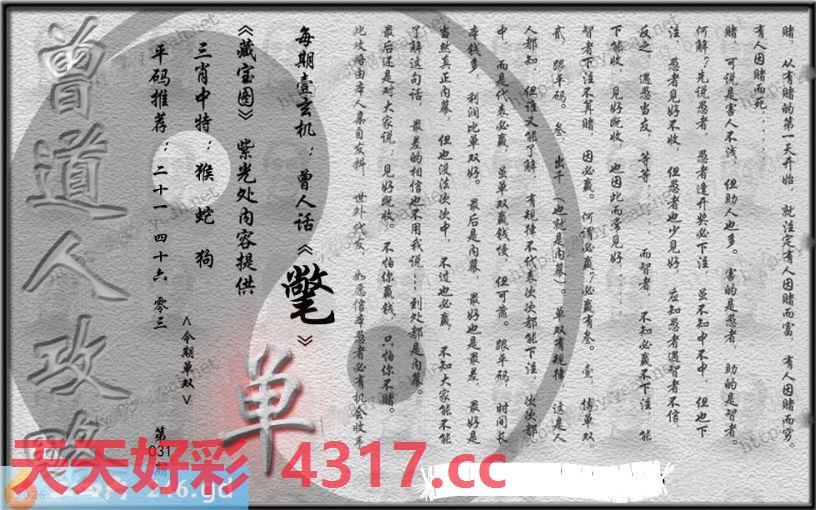 赌，从有赌的第一天开始，就注定有人因赌而富，有人因赌而穷。
有人因赌而死．．．．．
赌，可说是害人不浅，但助人也多。害的是愚者，助的是智者。
何解？先说愚者，愚者逢开奖必下注，虽不知中不中，但也下
注，愚者见好不收，但愚者也少见好，应知愚者遇智者不信，
反之，遇愚当友，等等，．．．．．而智者，不知必赢不下注，能
下能收，见好既收，也因此而常见好，．．．．．
智者下注不算赌，因必赢。何谓必赢？必赢有叁。壹，博单双，
贰，跟平码。叁，出千（也就是内幕）。单双有规律，这是人
人都知，但谁又能了解，有规律不代表次次都能下注，次次都
中，而是代表必赢，虽单双赢钱慢，但可靠。跟平码，时间长
本钱多，利润比单双好。最后是内幕，最好也是最差，最好是
当然真正内幕，但也没法次次中，不过也必赢，不知大家能不能
了解这句话，最差的相信也不用我说....到处都是内幕。
最后还是对大家说：见好既收。不怕你赢钱，只怕你不赌。
此攻略由本人集自发料，世外代发，如愿信本愚者必有机会收手
每期壹玄机：曾人话《氅》
《藏宝图》紫光处内容提供
三肖中特：猴 蛇 狗
平码推荐：二十一 四十六 零三
<令期单双>
单
第031期
曾道人攻略
天天好彩 4317.cc